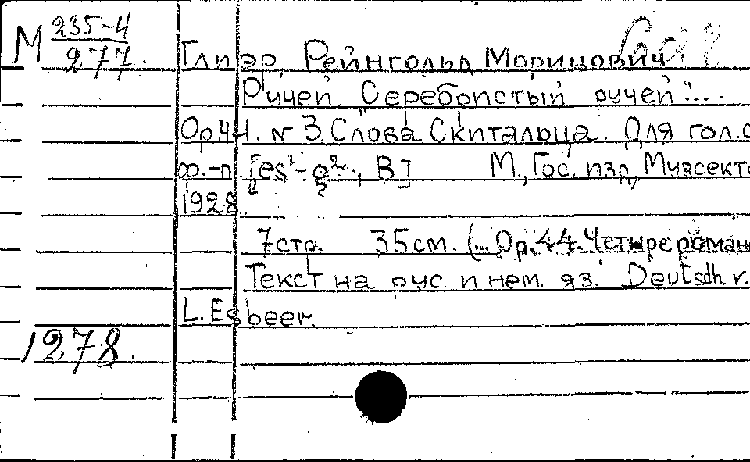 М 235-4
277.
Глиэр, Рейнгольд Морицович
Ручей „Серебристый ручей"...
Ор.44. N 3. Слова Скитальца. Для гол. с
ф.-п. [es¹-g², B] М., Гос. изд, Музсекто
1928.
7 стр. 35 см. (... Ор. 44. Четыре роман
Текст на рус. и нем. яз. Deutsch v.
L. Esbeer.
1278.